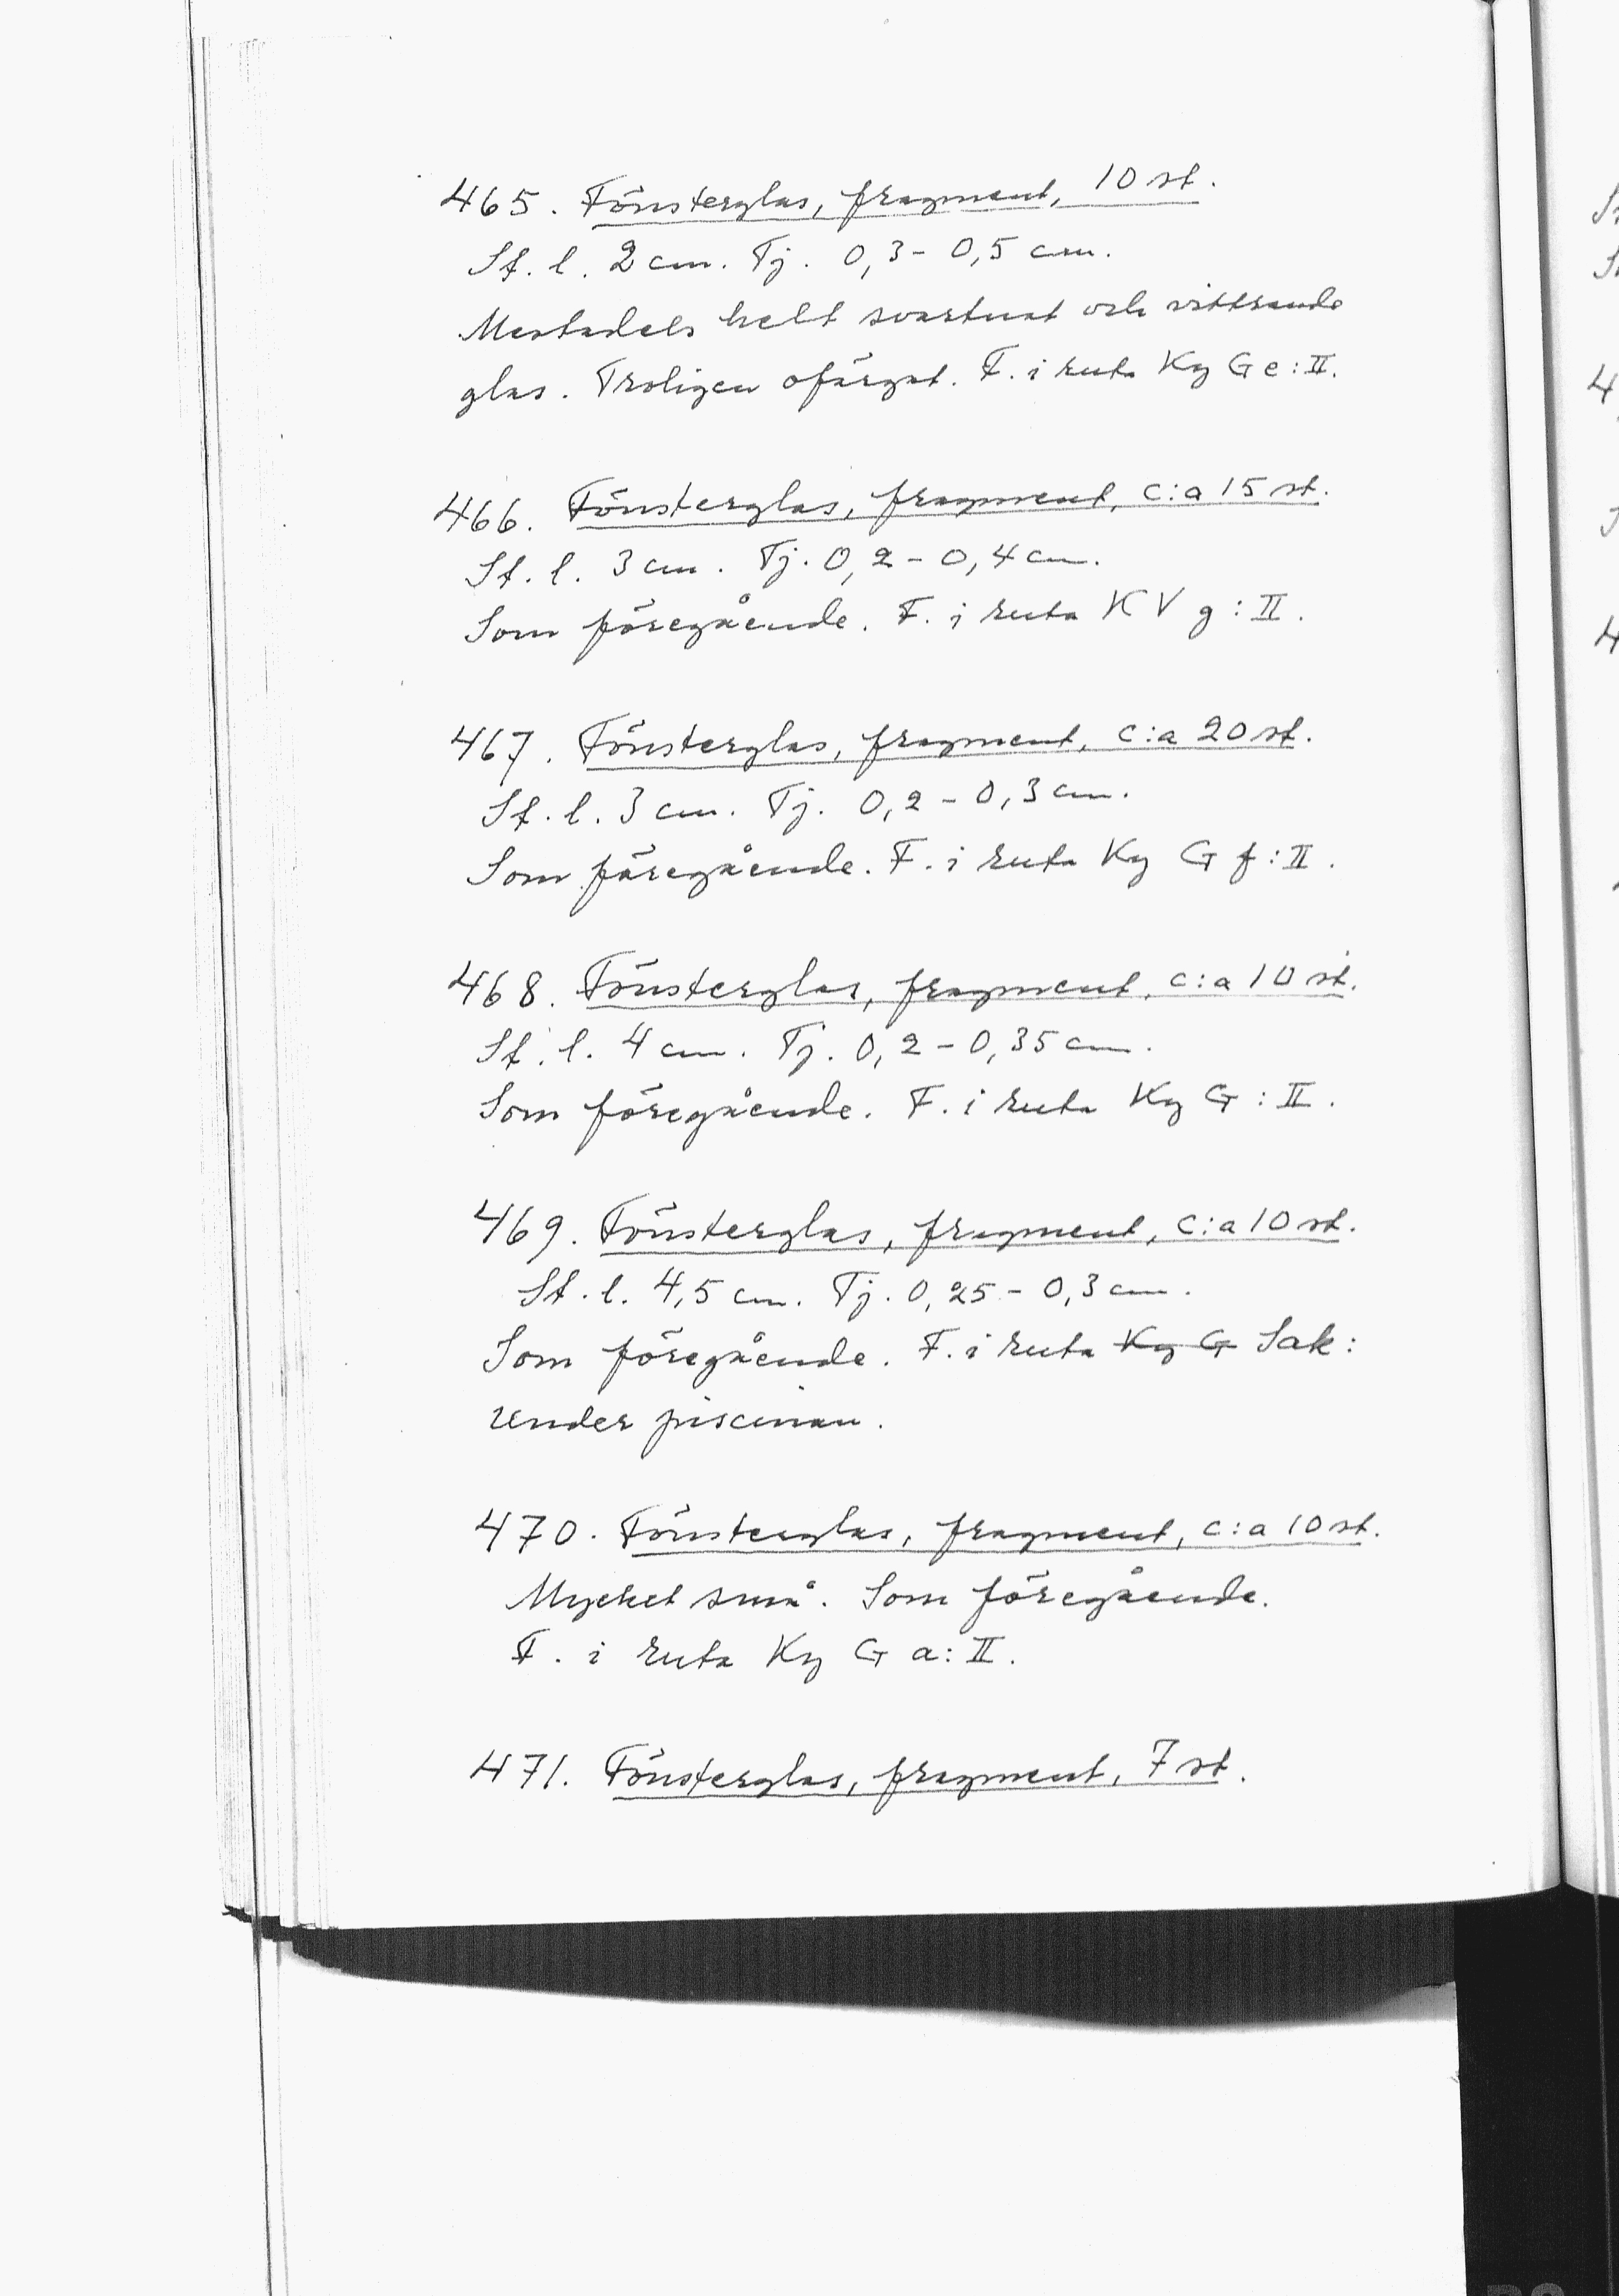 465. Fönsterglas, fragment, 10 st.
St. l. 2 cm. Tj. 0,3 - 0,5 cm.
Mestadels helt svartnat och vittrande
glas. Troligen ofärgat. F. i ruta Ky G e : II.
466. Fönsterglas, fragment, c:a 15 st.
St. l. 3 cm. Tj. 0,2 - 0,4 cm.
Som föregående. F. i ruta K V g : II.
467. Fönsterglas, fragment, c:a 20 st.
St. l. 3 cm. Tj. 0,2 - 0,3 cm.
Som föregående. F. i ruta Ky G f : II.
468. Fönsterglas, fragment, c:a 10 st.
St. l. 4 cm. Tj. 0,2 - 0,35 cm.
Som föregående. F. i ruta Ky G : II.
469. Fönsterglas, fragment, c:a 10 st.
St. l. 4,5 cm. Tj. 0,25 - 0,3 cm.
Som föregående. F. i ruta Ky G Sak :
under piscinan.
470. Fönsterglas, fragment, c:a 10 st.
Mycket små. Som föregående.
F. i ruta Ky G a : II.
471. Fönsterglas, fragment, 7 st.